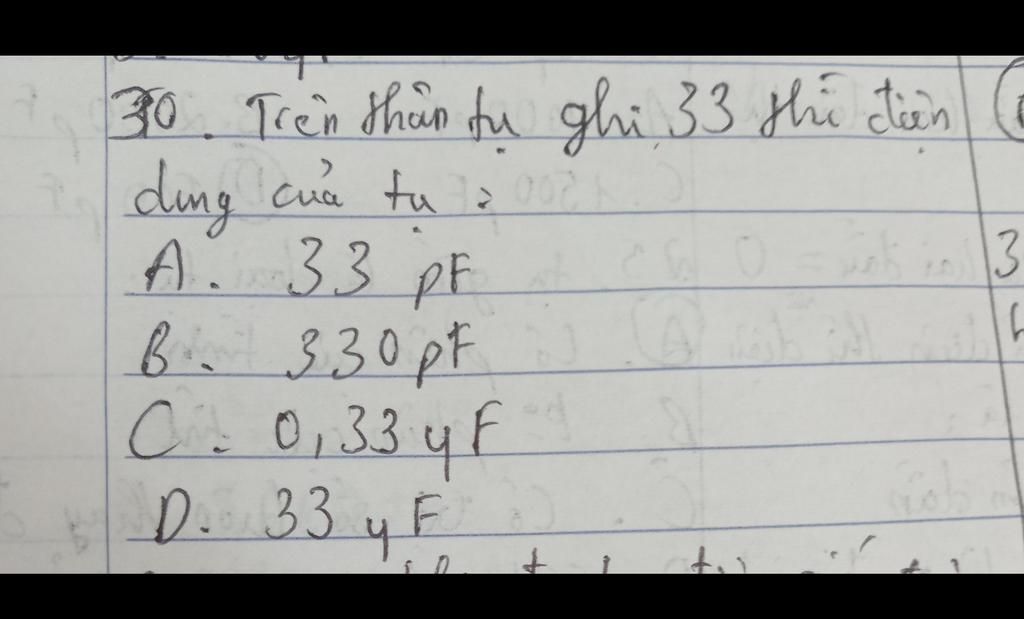 30. Trên thân tụ ghi 33 thì điện
dung của tụ :
A. 33 pF
B. 330 pF
C. 0,33 μF
D. 33 μF